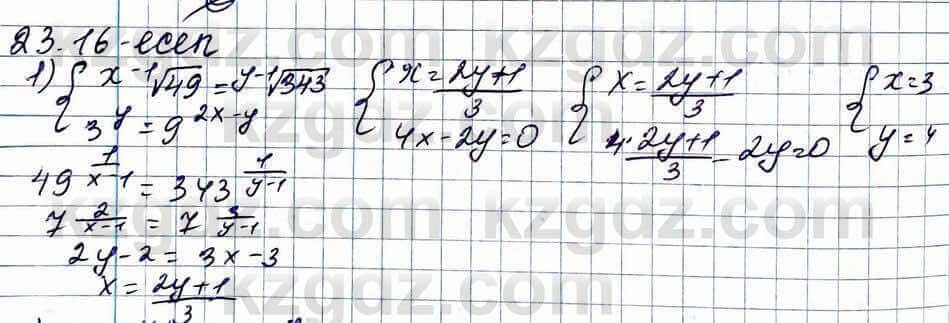 23.16-есеп
1) { x-1√49 = y-1√343 { x = 2y+1/3 { x = 2y+1/3 { x = 3
3^y = 9^2x-y 4x - 2y = 0 4·2y+1/3 - 2y = 0 y = 4
49^1/x-1 = 343^1/y-1
7^2/x-1 = 7^3/y-1
2y - 2 = 3x - 3
x = 2y+1/3
kzgdz.com